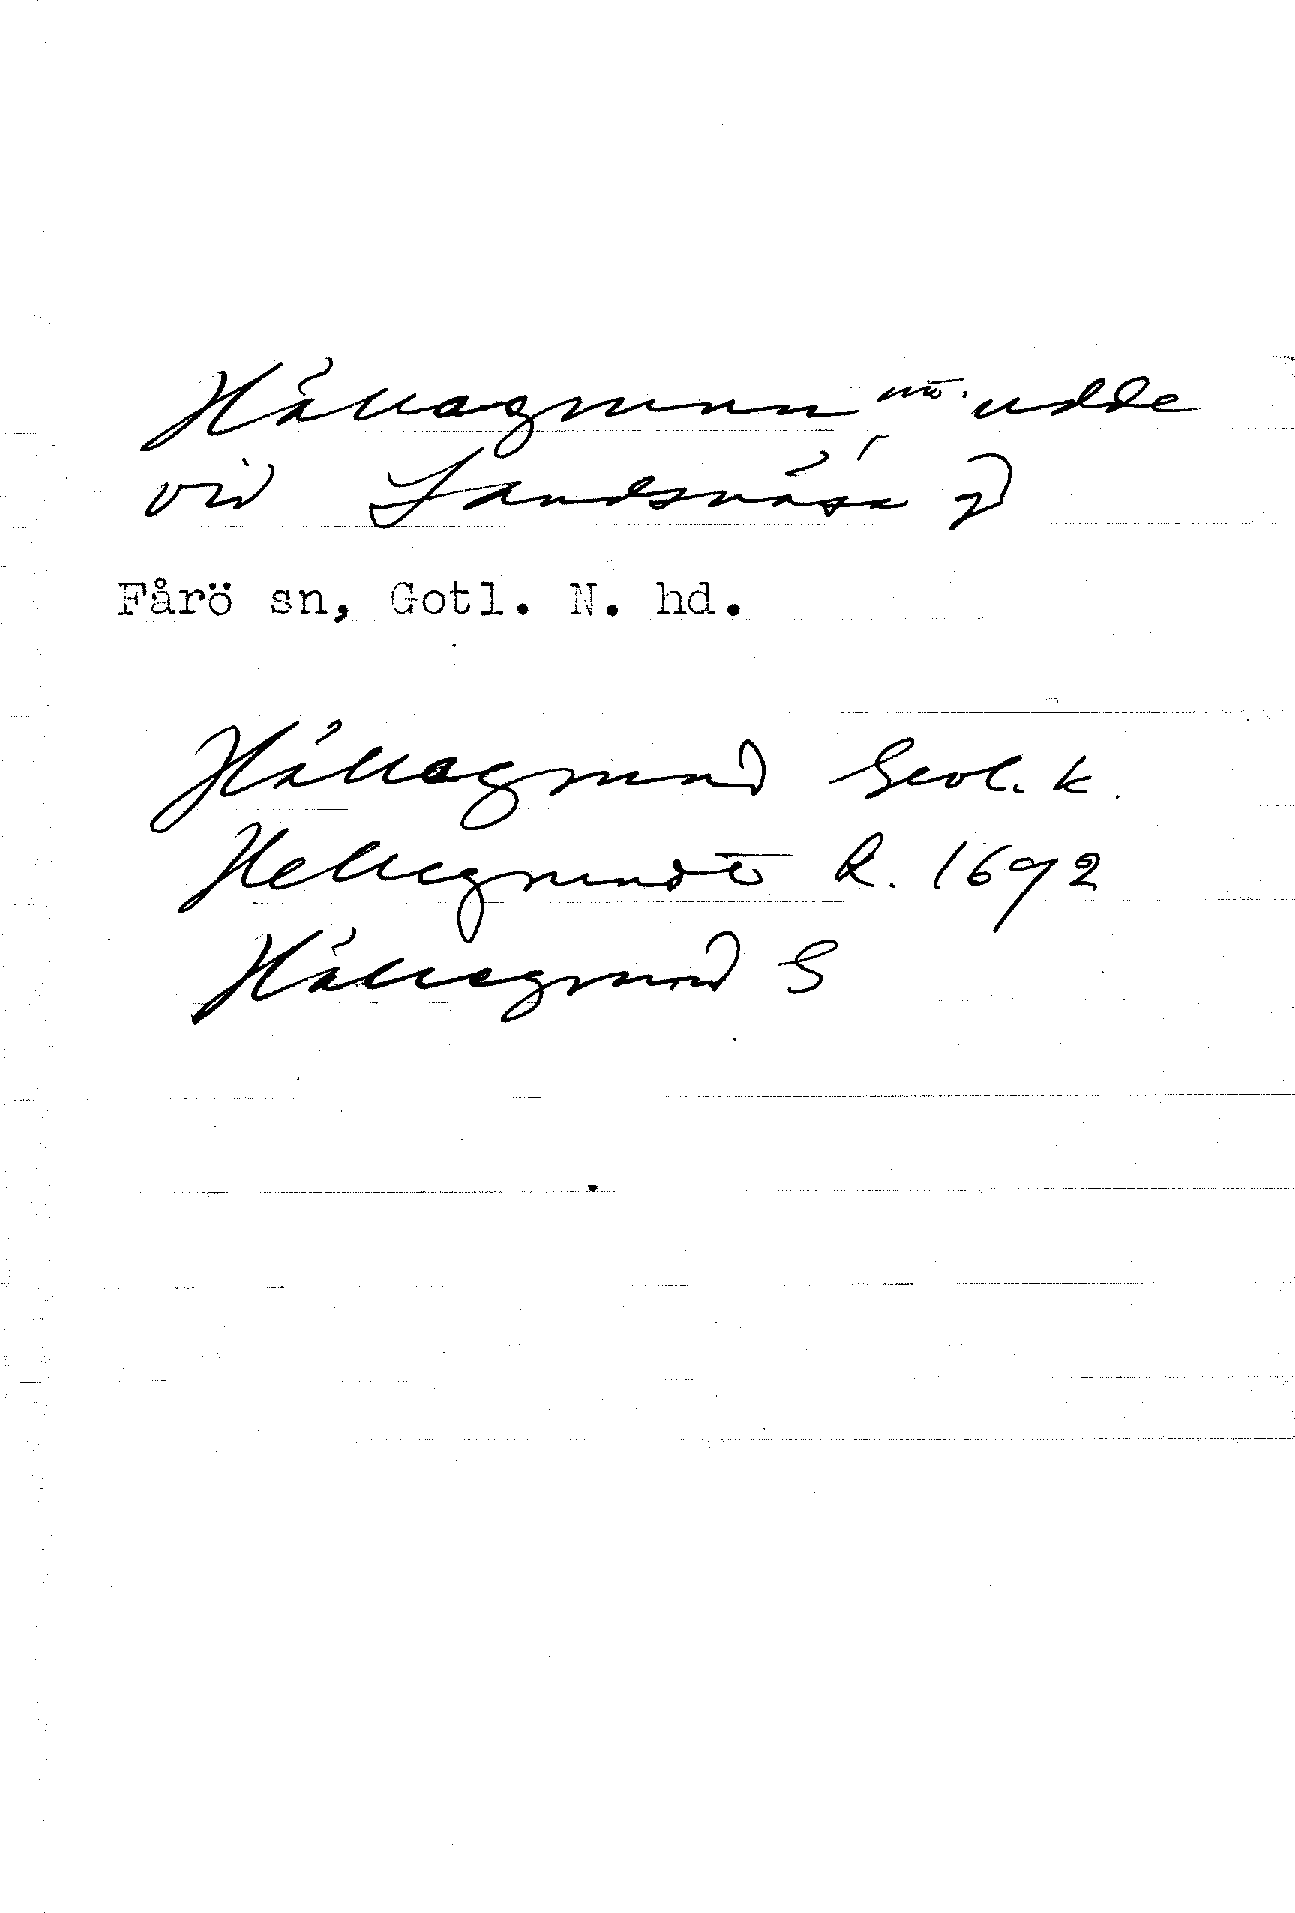 Hällagrunn udde
vid Landsnäsa
Fårö sn, Gotl. N. hd.
Hällagrund Geol. k.
Hellegrundt R. 1692
Hällagrund G